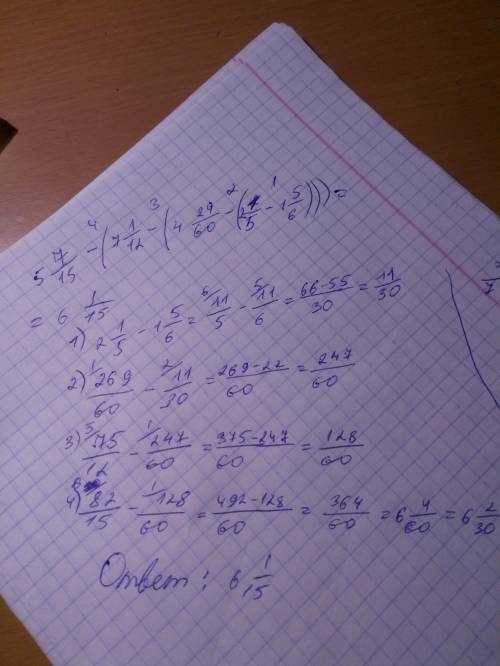 5 7/15 - (7 1/12 - (4 29/60 - (2 1/5 - 1 5/6))) =
= 6 1/15
1) 2 1/5 - 1 5/6 = 11/5 - 11/6 = 66-55/30 = 11/30
2) 269/60 - 11/30 = 269-22/60 = 247/60
3) 75/12 - 247/60 = 375-247/60 = 128/60
4) 82/15 - 128/60 = 492-128/60 = 364/60 = 6 4/60 = 6 2/30
Ответ: 6 1/15